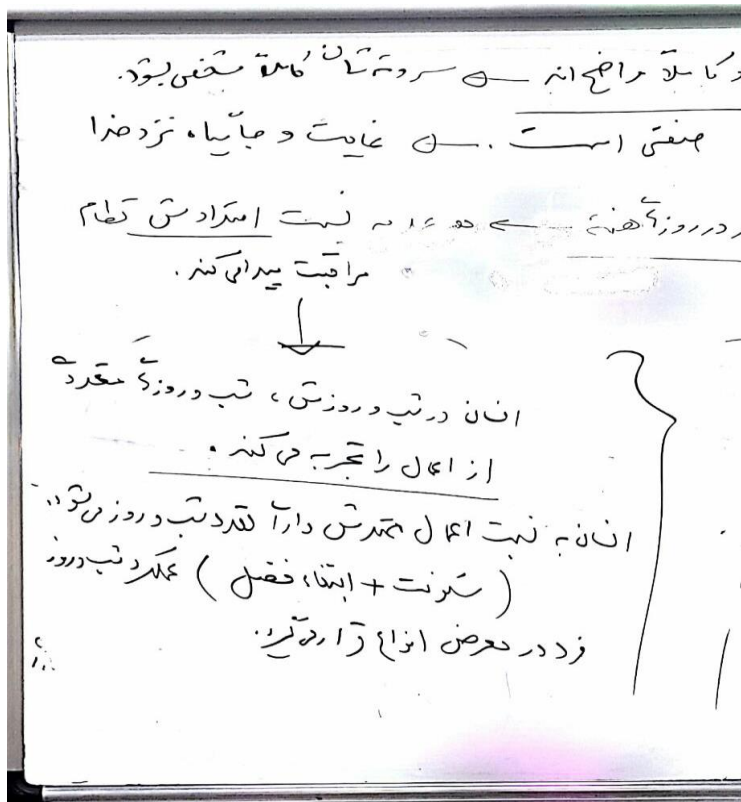 و کاملاً واضح‌اند ← سر و ته‌شان کاملاً مشخص بشود.
صنفی است. ← غایت و جایگاه نزد خدا
در روزهای هفته ← به نسبت امتدادش نظام
مراقبت پیدا می‌کند.
انسان در شب و روزش، شب و روزهای متعددی
از اعمال را تجربه می‌کند.
انسان به نسبت اعمال ممتدش دارای تعدد شب و روز می‌شود.
(سکونت + ابتغاء فضل) عملکرد شب و روز
فرد در معرض انواع قرار می‌گیرد.